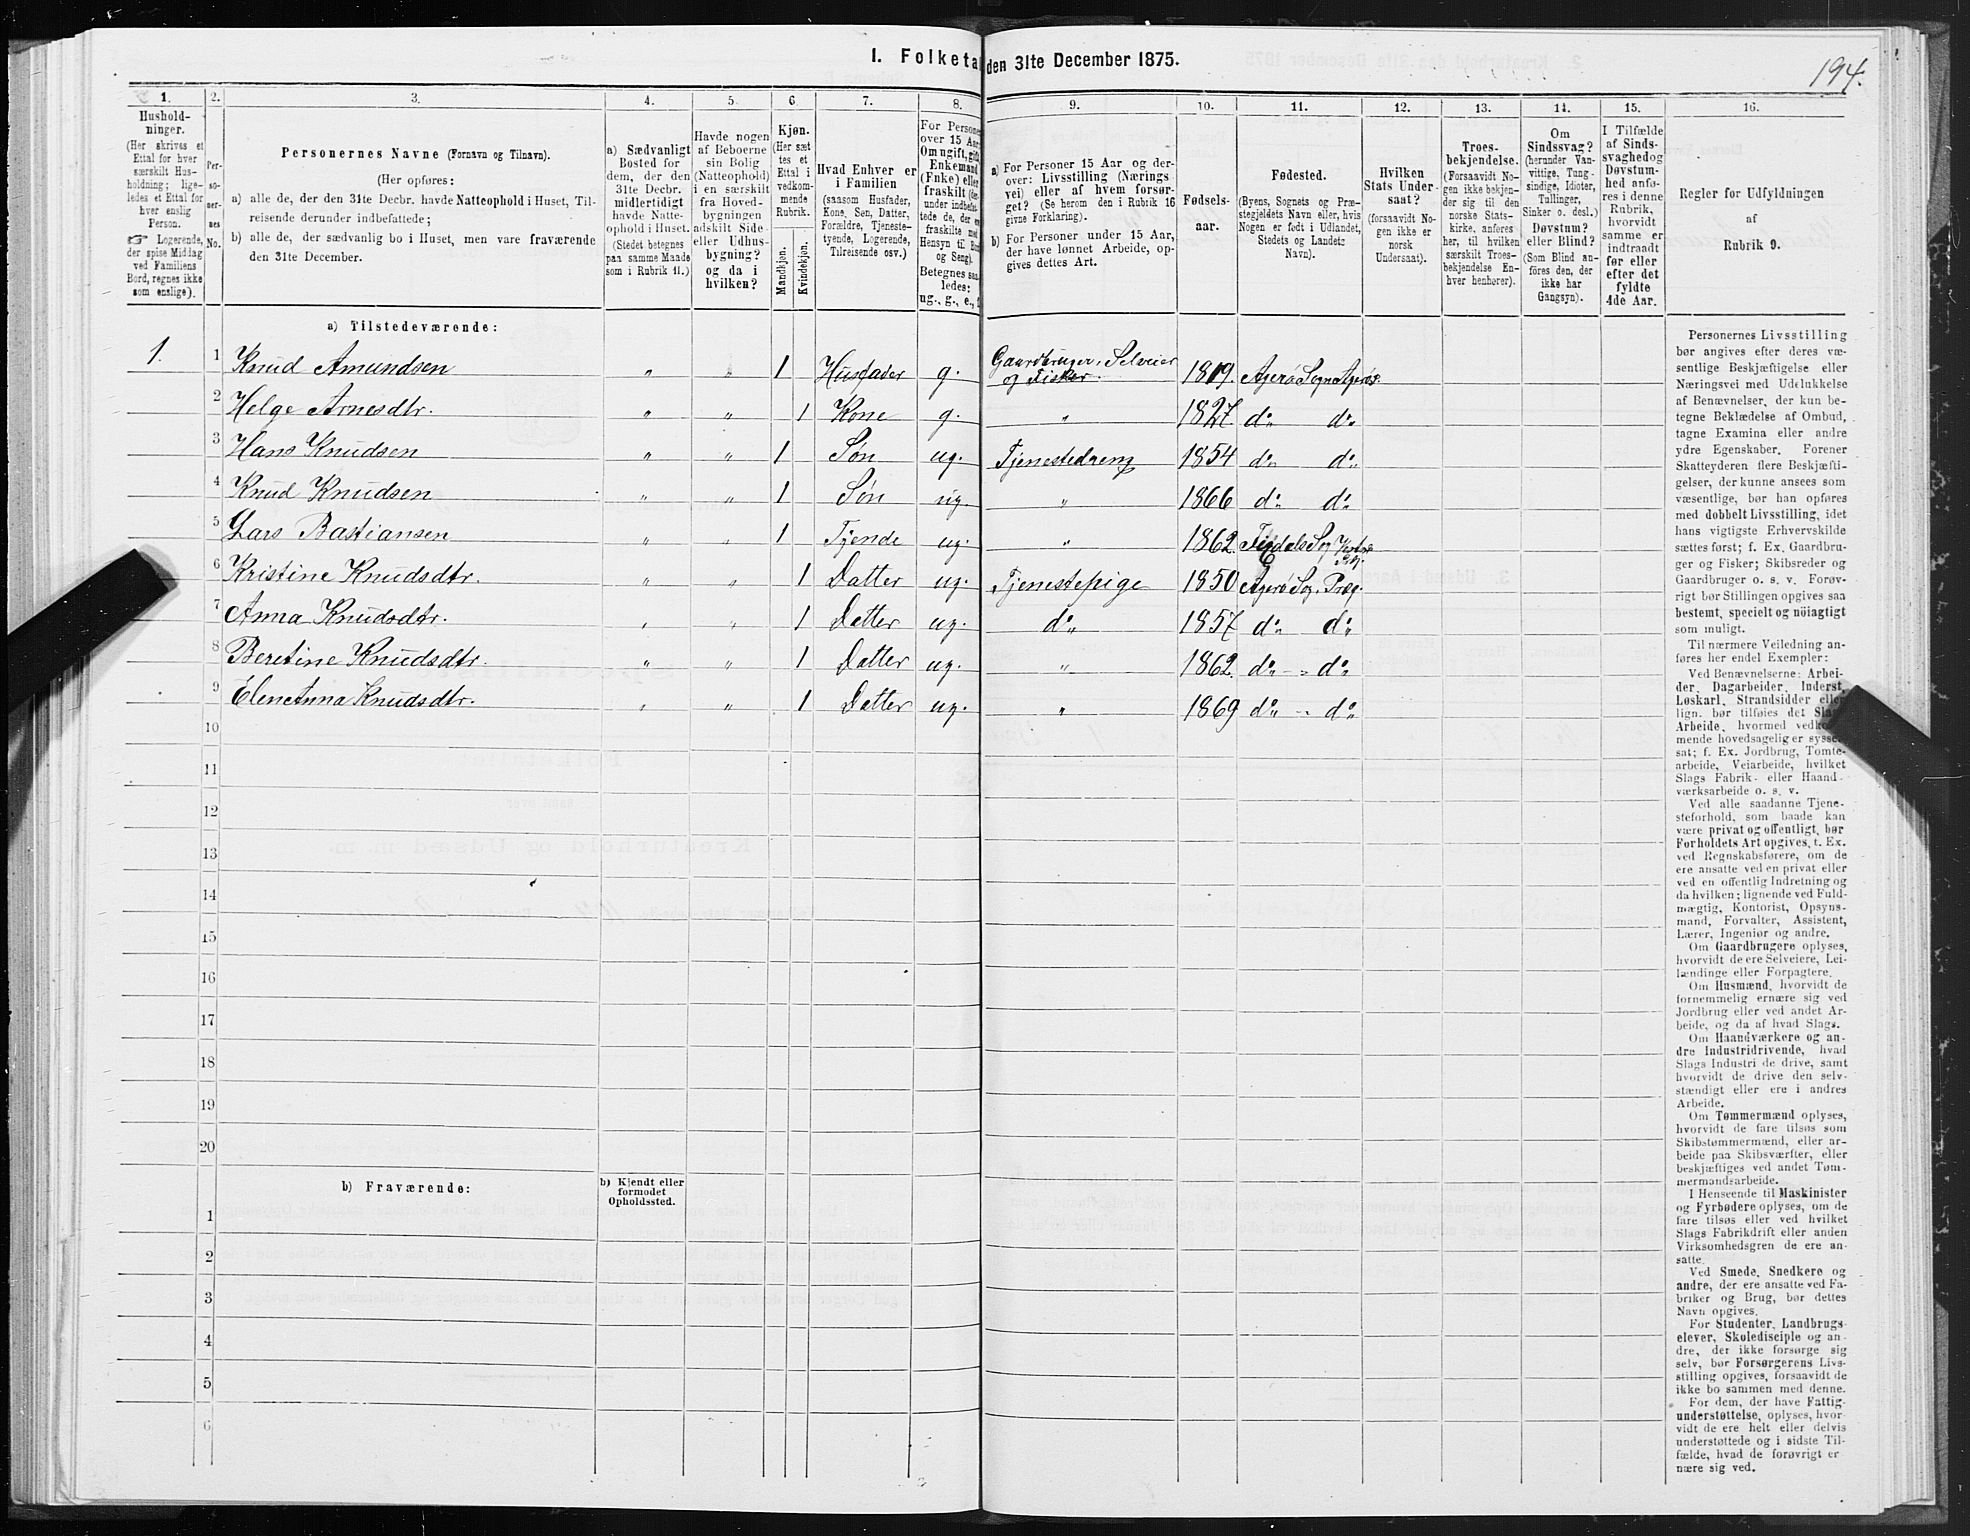 I. Folketa den 31te December 1875.
194.
1. 2. 3. 4. 5. 6. 7. 8. 9. 10. 11. 12. 13. 14. 15. 16.
Hushold-
ninger.
(Her skrives et
Ettal for hver
særskilt Hus-
holdning; lige-
ledes et Ettal for
hver enslig
Person.
☞ Logerende,
der spise Middag
ved Familiens
Bord, regnes ikke
som enslige).
Per-
so-
ner-
nes
No.
Personernes Navne (Fornavn og Tilnavn).
(Her opføres:
a) alle de, der den 31te Decbr. havde Natteophold i Huset, Til-
reisende derunder indbefattede;
b) alle de, der sædvanlig bo i Huset, men vare fraværende
den 31te December.
a) Sædvanligt
Bosted for
dem, der den
31te Decbr.
midlertidigt
havde Natte-
ophold i Huset.
(Stedet betegnes
paa samme Maade
som i Rubrik 11.)
Havde nogen
af Beboerne
sin Bolig
(Natteophold)
i en særskilt
fra Hoved-
bygningen
adskilt Side-
eller Udhus-
bygning?
og da i
hvilken?
Kjøn.
(Her sæt
tes et
Ettal i
vedkom-
mende
Rubrik.
Mandkjøn.
Kvindekjøn.
Hvad Enhver er
i Familien
(saasom Husfader,
Kone, Søn, Datter,
Forældre, Tjeneste-
tyende, Logerende,
Tilreisende osv.)
For Persone
over 15 Aar
Om ugift, gift
Enkemand
(Enke) eller
fraskilt (der
under indbefat-
tede de, der ere
fraskilte med
Hensyn til Bord
og Seng).
Betegnes saa
ledes:
ug., g., e., f.
a) For Personer 15 Aar og der-
over: Livsstilling (Nærings-
vei) eller af hvem forsør-
get? (Se herom den i Rubrik 16
givne Forklaring).
b) For Personer under 15 Aar,
der have lønnet Arbeide, op-
gives dettes Art.
Fødsels-
aar.
Fødested.
(Byens, Sognets og Præ-
stegjeldets Navn eller, hvis
Nogen er født i Udlandet,
Stedets og Landets
Navn).
Hvilken
Stats Under-
saat?
(forsaavidt No-
gen ikke er
norsk
Undersaat).
Troes-
bekjendelse.
(Forsaavidt No-
gen ikke bekjen-
der sig til den
norske Stats-
kirke, anføres
her, til hvilken
særskilt Troes-
bekjendelse En-
hver henhører).
Om
Sindssvag?
(herunder Van-
vittige, Tung-
sindige, Idioter,
Tullinger,
Sinker o. desl.)
Døvstum?
eller Blind?
(Som Blind an-
føres den, der
ikke har
Gangsyn).
I Tilfælde
af Sinds-
svaghed og
Døvstum-
hed anfø-
res i denne
Rubrik,
hvorvidt
samme er
indtraadt
før eller
efter det
fyldte
4de Aar.
Regler for Udfyldningen
af
Rubrik 9.
a) Tilstedeværende:
1. 1 Knud Amundsen „ „ 1 Husfader g. Gaardbruger, Selveier og Fisker. 1819. Agerø Sogn Agerø.
2 Helge Arnesdtr. „ „ 1 Kone g. „ 1827. do do
3 Hans Knudsen „ „ 1 Søn ug. Tjenestedreng 1854 do do
4 Knud Knudsen „ „ 1 Søn ug. „ 1866 do do
5 Lars Bastiansen „ „ 1 Tjende ug. „ 1862
6 Kristine Knudsdtr. „ „ 1 Datter ug. Tjenestepige 1850 Agerø Sog. Præg.
7 Anna Knudsdtr. „ „ 1 Datter ug. do 1857 do do
8 Beretine Knudsdtr. „ „ 1 Datter ug. „ 1862. do - „ do
9 Elen Anna Knudsdtr. „ „ 1 Datter ug. „ 1869 do - do
10
11
12
13
14
15
16
17
18
19
20
b) Fraværende:
b) Kjendt eller
formodet
Opholdssted.
1
2
3
4
5
6
Personernes Livsstilling
bør angives efter deres væ-
sentlige Beskjæftigelse eller
Næringsvei med Udelukkelse
af Benævnelser, der kun be-
tegne Beklædelse af Ombud,
tagne Examina eller andre
ydre Egenskaber. Forener
Skatteyderen flere Beskjæfti-
gelser, der kunne ansees som
væsentlige, bør han opføres
med dobbelt Livsstilling, idet
hans vigtigste Erhvervskilde
sættes først; f. Ex. Gaardbru-
ger og Fisker; Skibsreder og
Gaardbruger o. s. v. Forøv-
rigt bør Stillingen opgives saa
bestemt, specielt og nöiagtigt
som muligt.
Til nærmere Veiledning an-
føres her endel Exempler:
Ved Benævnelserne: Arbei-
der, Dagarbeider, Inderst,
Løskarl, Strandsidder eller
lign. bør tilføies det Slags
Arbeide, hvormed vedkom-
mende hovedsagelig er syssel-
sat; f. Ex. Jordbrug, Tomte-
arbeide, Veiarbeide, hvilket
Slags Fabrik- eller Haand-
værksarbeide o. s. v.
Ved alle saadanne Tjene-
steforhold, som baade kan
være privat og offentligt, bør
Forholdets Art opgives, t. Ex.
ved Regnskabsførere, om de
ere ansatte ved en privat eller
ved en offentlig Indretning og
da hvilken; lignende ved Fuld-
mægtig, Kontorist, Opsyns-
mand, Forvalter, Assistent,
Lærer, Ingeniør og andre.
Om Gaardbrugere oplyses,
hvorvidt de ere Selveiere, Lei-
lændinge eller Forpagtere.
Om Husmænd, hvorvidt de
fornemmelig ernære sig ved
Jordbrug eller ved andet Ar-
beide, og da af hvad Slags.
Om Haandværkere og an-
dre Industridrivende, hvad
Slags Industri de drive, samt
hvorvidt de drive den selv-
stændigt eller ere i andres
Arbeide.
Om Tømmermænd oplyses,
hvorvidt de fare tilsøs som
Skibstømmermænd, eller ar-
beide paa Skibsværfter, eller
beskjæftiges ved andet Tøm-
mermandsarbeide.
I Henseende til Maskinister
og Fyrbødere oplyses, om de
fare tilsøs eller ved hvilket
Slags Fabrikdrift eller anden
Virksomhedsgren de ere an-
satte.
Ved Smede, Snedkere og
andre, der ere ansatte ved Fa-
briker og Brug, bør dettes
Navn opgives.
For Studenter, Landbrugs-
elever, Skoledisciple og an-
dre, der ikke forsørge sig
selv, bør Forsørgerens Livs-
stilling opgives, forsaavidt de
ikke bo sammen med denne.
For dem, der have Fattig-
understøttelse, oplyses, hvor-
vidt de ere helt eller delvis
understøttede og i sidste Til-
fælde, hvad de forøvrigt er-
nære sig ved.